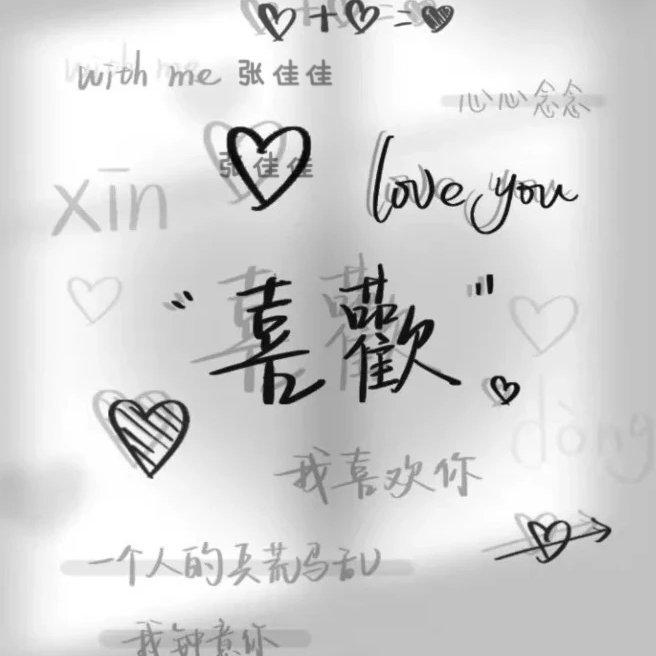 + =
with me 张佳佳
心心念念
张佳佳
xīn
love you
“喜歡”
dòng
我喜欢你
一个人的兵荒马乱
我钟意你